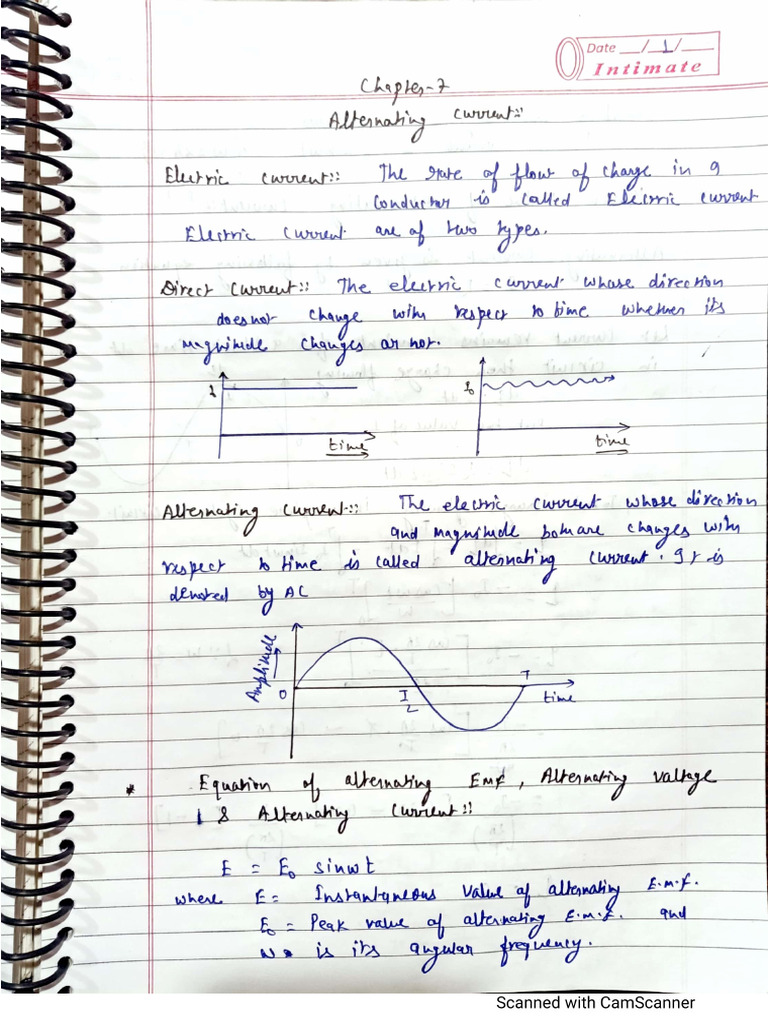 Date __/1/__
Intimate
Chapter-7
Alternating Current::
Electric Current:: The rate of flow of charge in a
Conductor is called Electric current
Electric Current are of two types.
Direct Current:: The electric current whose direction
does not change with respect to time whether its
magnitude changes or not.
I
time
I₀
time
Alternating Current:: The electric current whose direction
and magnitude both are changes with
respect to time is called alternating current. It is
denoted by AC
Amplitude
O
T/2
T
time
* Equation of alternating EMF, Alternating Valtage
& Alternating Current::
E = E₀ sinωt
where E = Instantaneous Value of alternating E.M.F.
E₀ = Peak value of alternating E.M.F. and
ω is its angular frequency.
Scanned with CamScanner